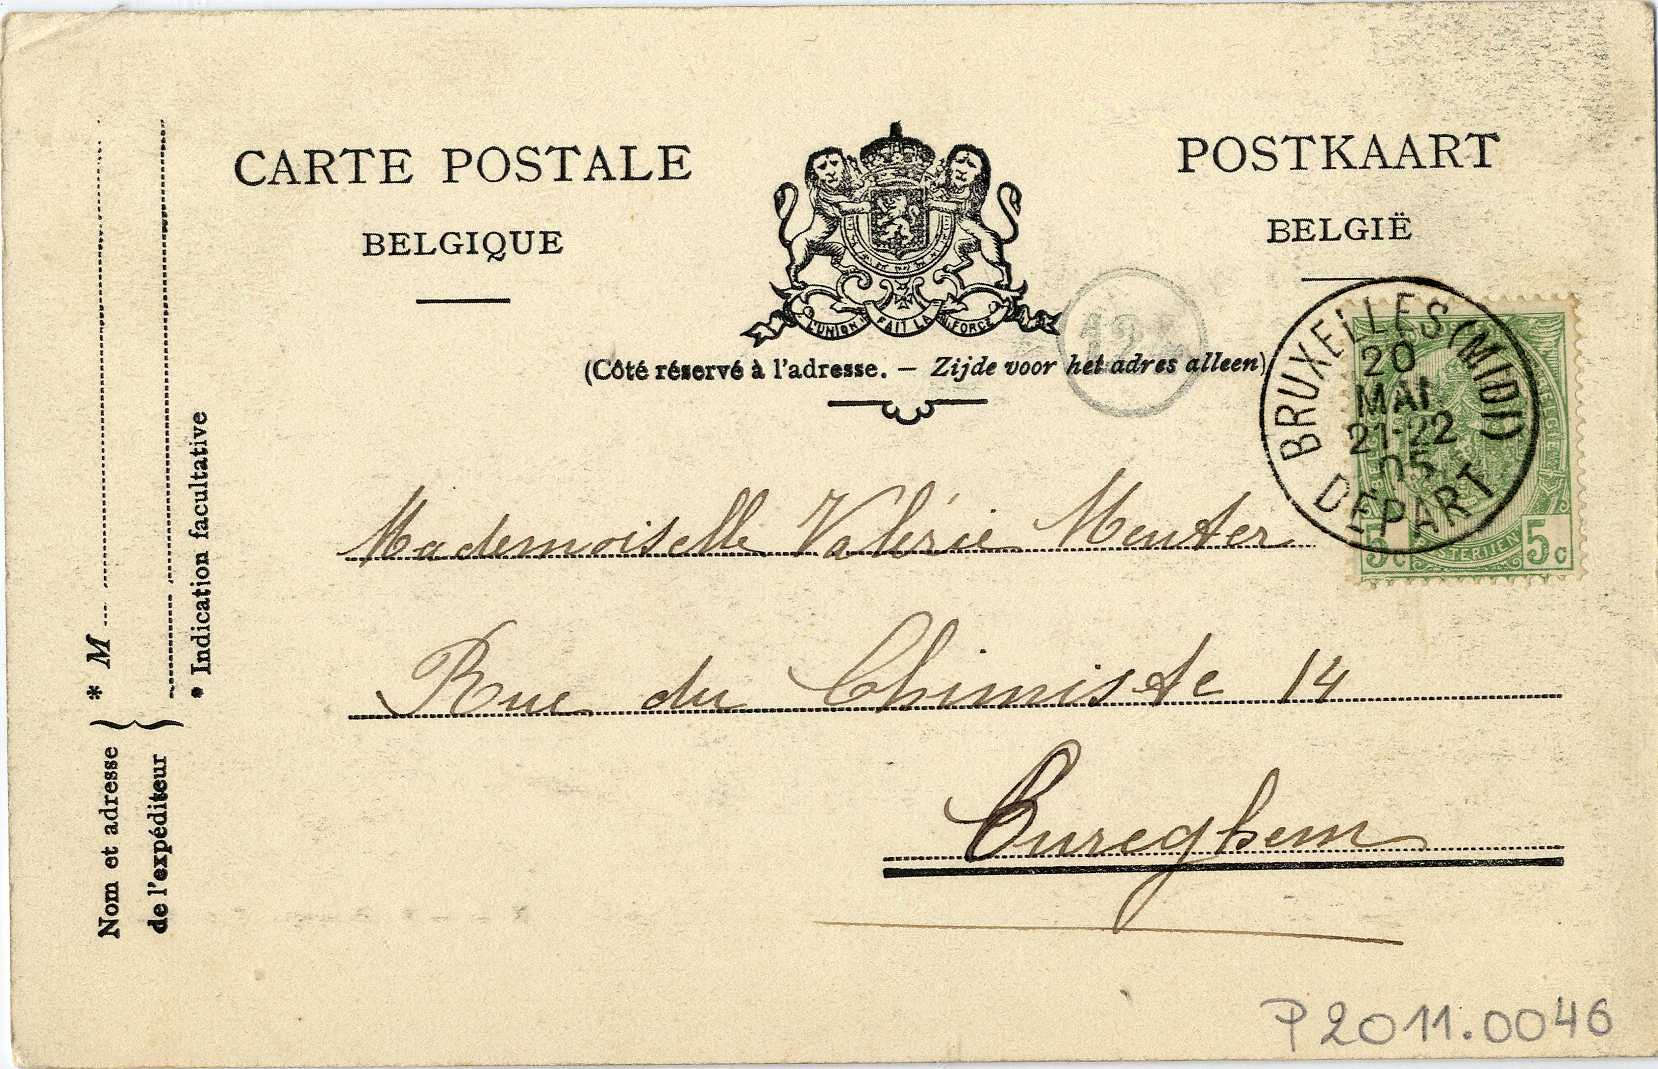 CARTE POSTALE
BELGIQUE
POSTKAART
BELGIË
L'UNION FAIT LA FORCE
(Côté réservé à l'adresse. — Zijde voor het adres alleen)
BRUXELLES (MIDI)
20
MAI
21-22
05
DEPART
5c
5c
Mademoiselle Valérie Meuter
Rue du Chimiste 14
Cureghem
Nom et adresse
de l'expéditeur
* M
* Indication facultative
P2011.0046